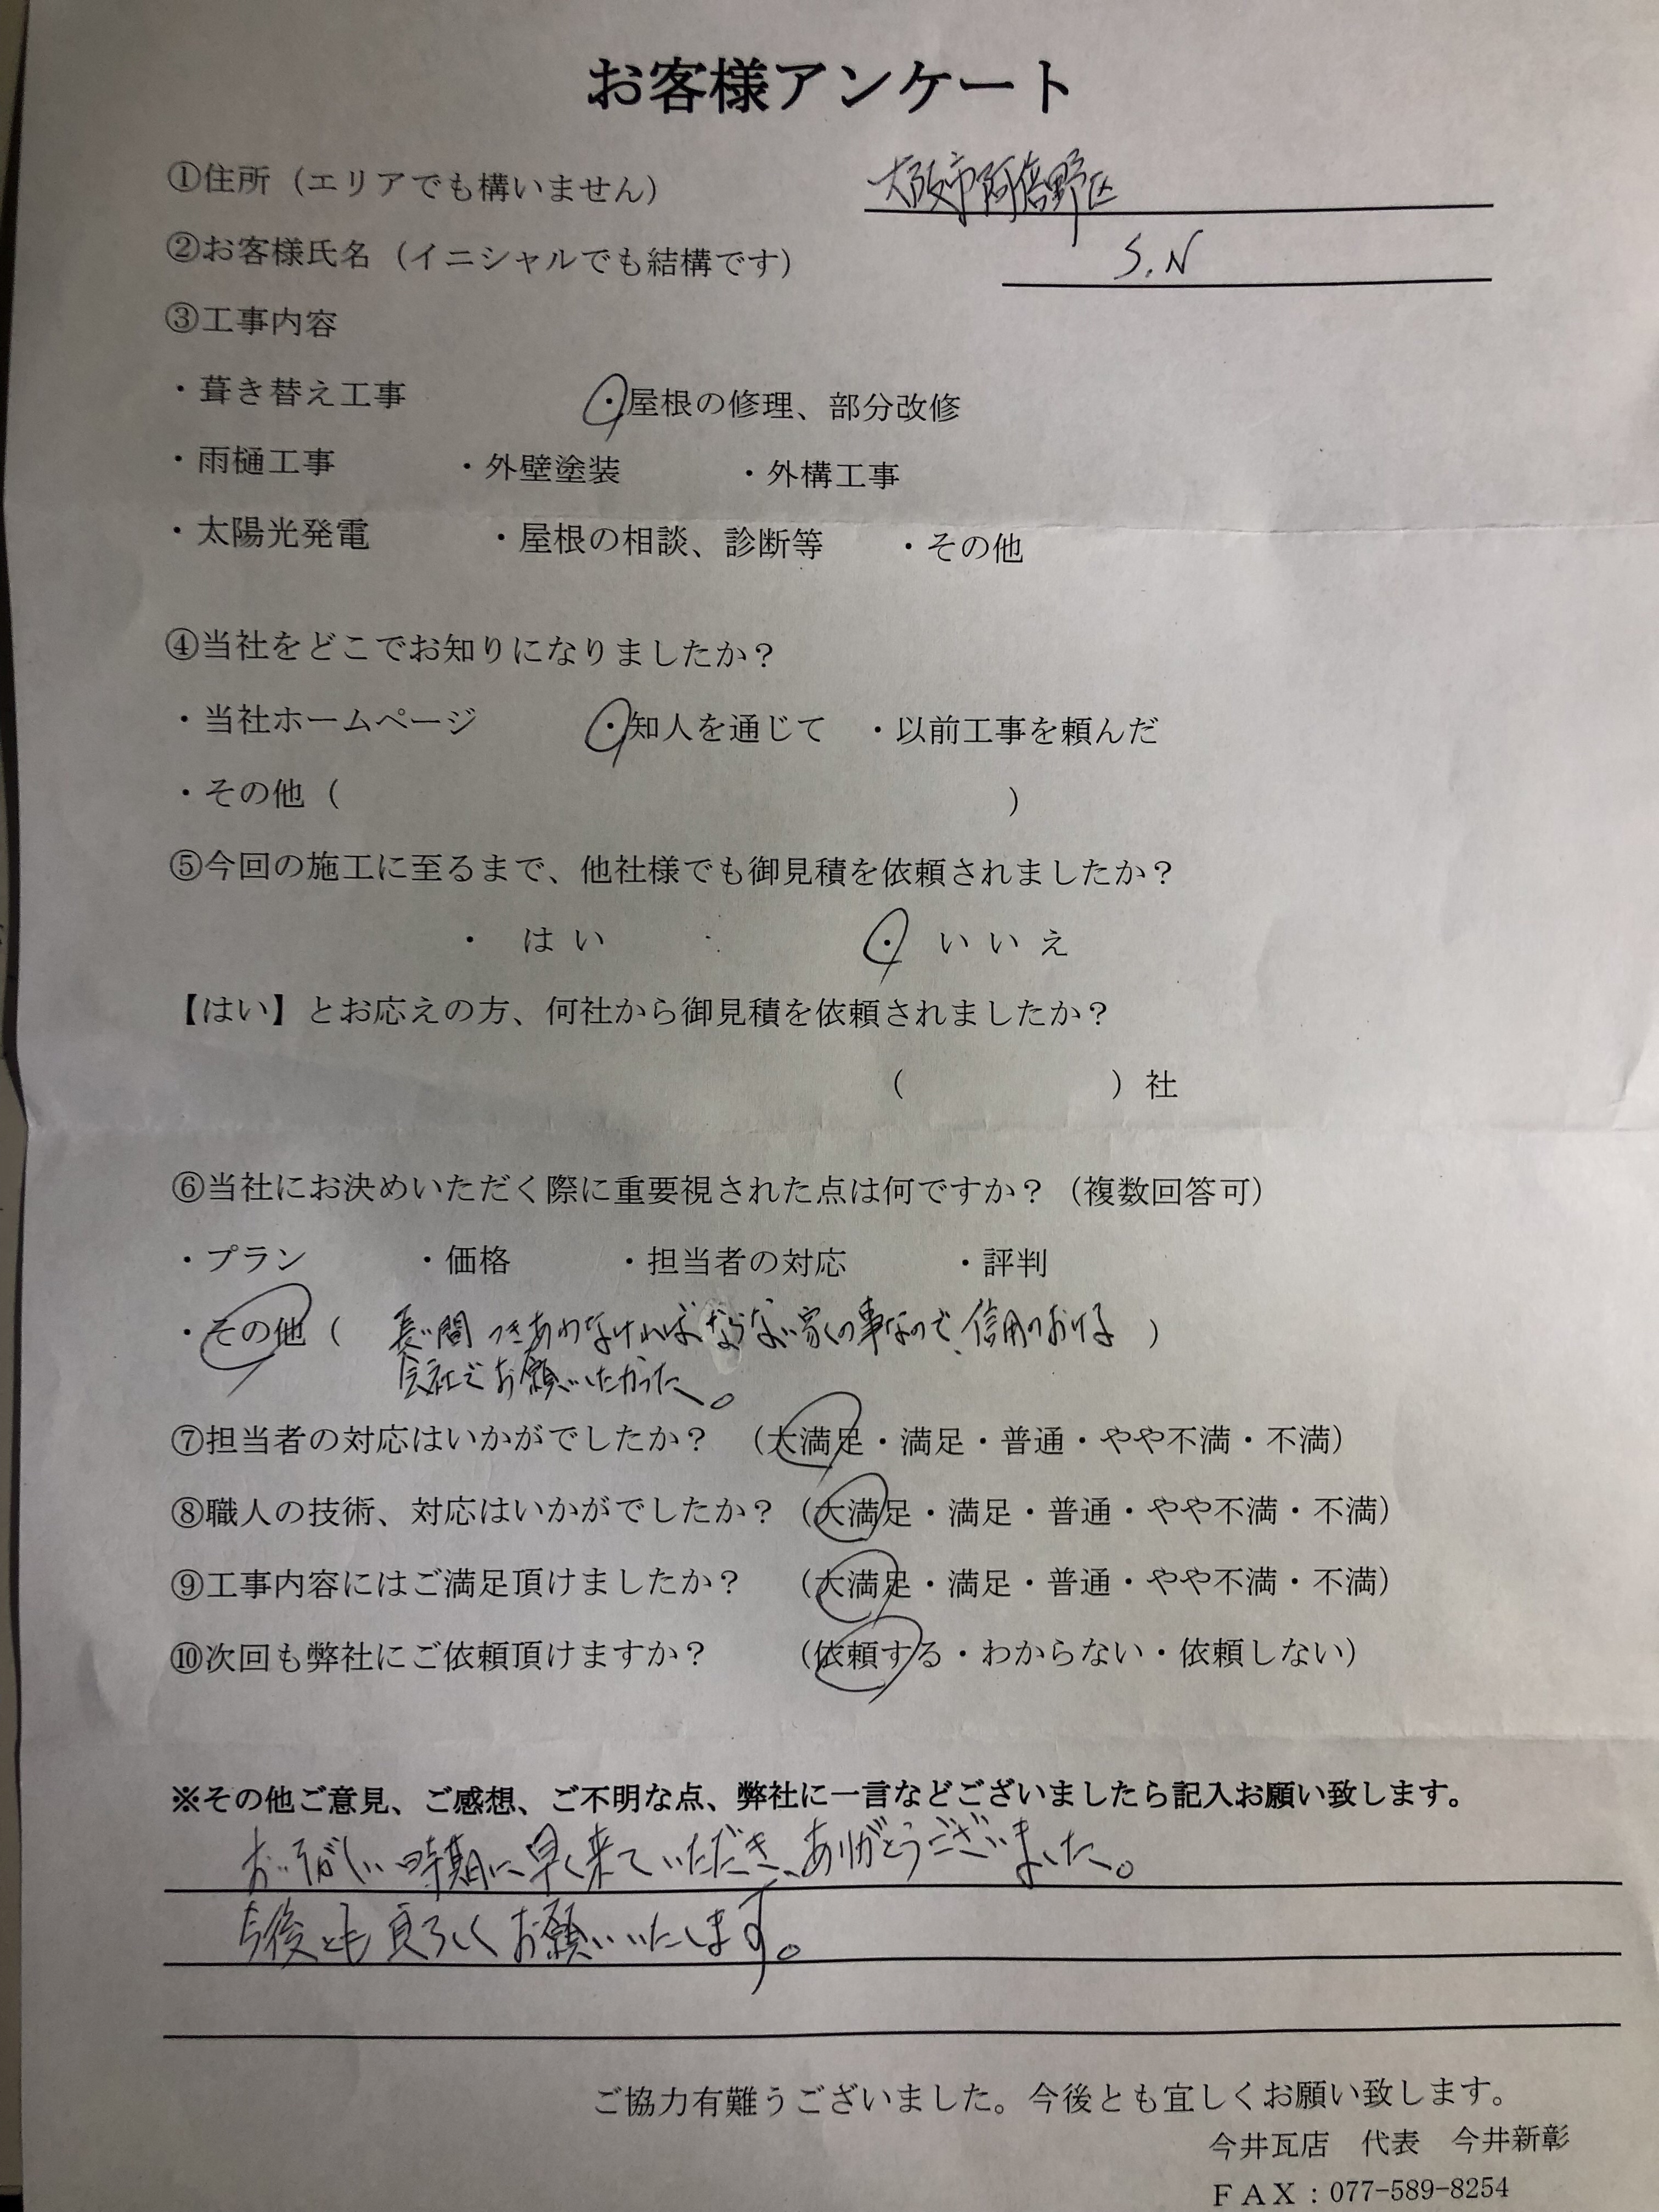 お客様アンケート
①住所（エリアでも構いません） 大阪市阿倍野区
②お客様氏名（イニシャルでも結構です） S.N
③工事内容
・葺き替え工事 ・屋根の修理、部分改修
・雨樋工事 ・外壁塗装 ・外構工事
・太陽光発電 ・屋根の相談、診断等 ・その他
④当社をどこでお知りになりましたか？
・当社ホームページ ・知人を通じて ・以前工事を頼んだ
・その他（ ）
⑤今回の施工に至るまで、他社様でも御見積を依頼されましたか？
・ はい ・ いいえ
【はい】とお応えの方、何社から御見積を依頼されましたか？
（ ）社
⑥当社にお決めいただく際に重要視された点は何ですか？（複数回答可）
・プラン ・価格 ・担当者の対応 ・評判
・その他（ 長い間つきあわなければならない家の事なので、信用のおける ）
会社にお願いしたかった。
⑦担当者の対応はいかがでしたか？ （大満足・満足・普通・やや不満・不満）
⑧職人の技術、対応はいかがでしたか？（大満足・満足・普通・やや不満・不満）
⑨工事内容にはご満足頂けましたか？ （大満足・満足・普通・やや不満・不満）
⑩次回も弊社にご依頼頂けますか？ （依頼する・わからない・依頼しない）
※その他ご意見、ご感想、ご不明な点、弊社に一言などございましたら記入お願い致します。
おいそがしい時期に早く来ていただき、ありがとうございました。
今後とも良ろしくお願いいたします。
ご協力有難うございました。今後とも宜しくお願い致します。
今井瓦店 代表 今井新彰
ＦＡＸ：077-589-8254